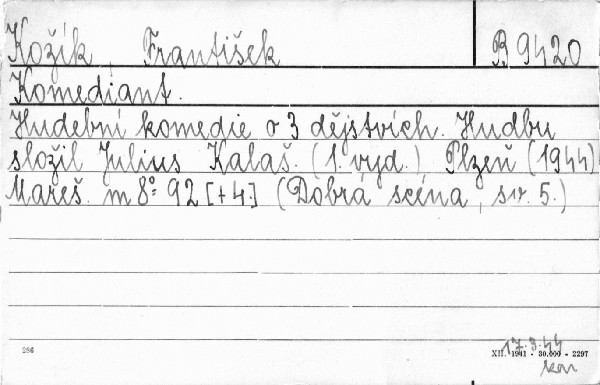 Kožík František B 9420
Komediant.
Hudební komedie o 3 dějstvích. Hudbu
složil Julius Kalaš. (1. vyd.) Plzeň (1944)
Mareš. m 8° 92 [+4.] (Dobrá scéna, sv. 5.)
17.3.44
286 XII. 1941 - 30.000 - 2297